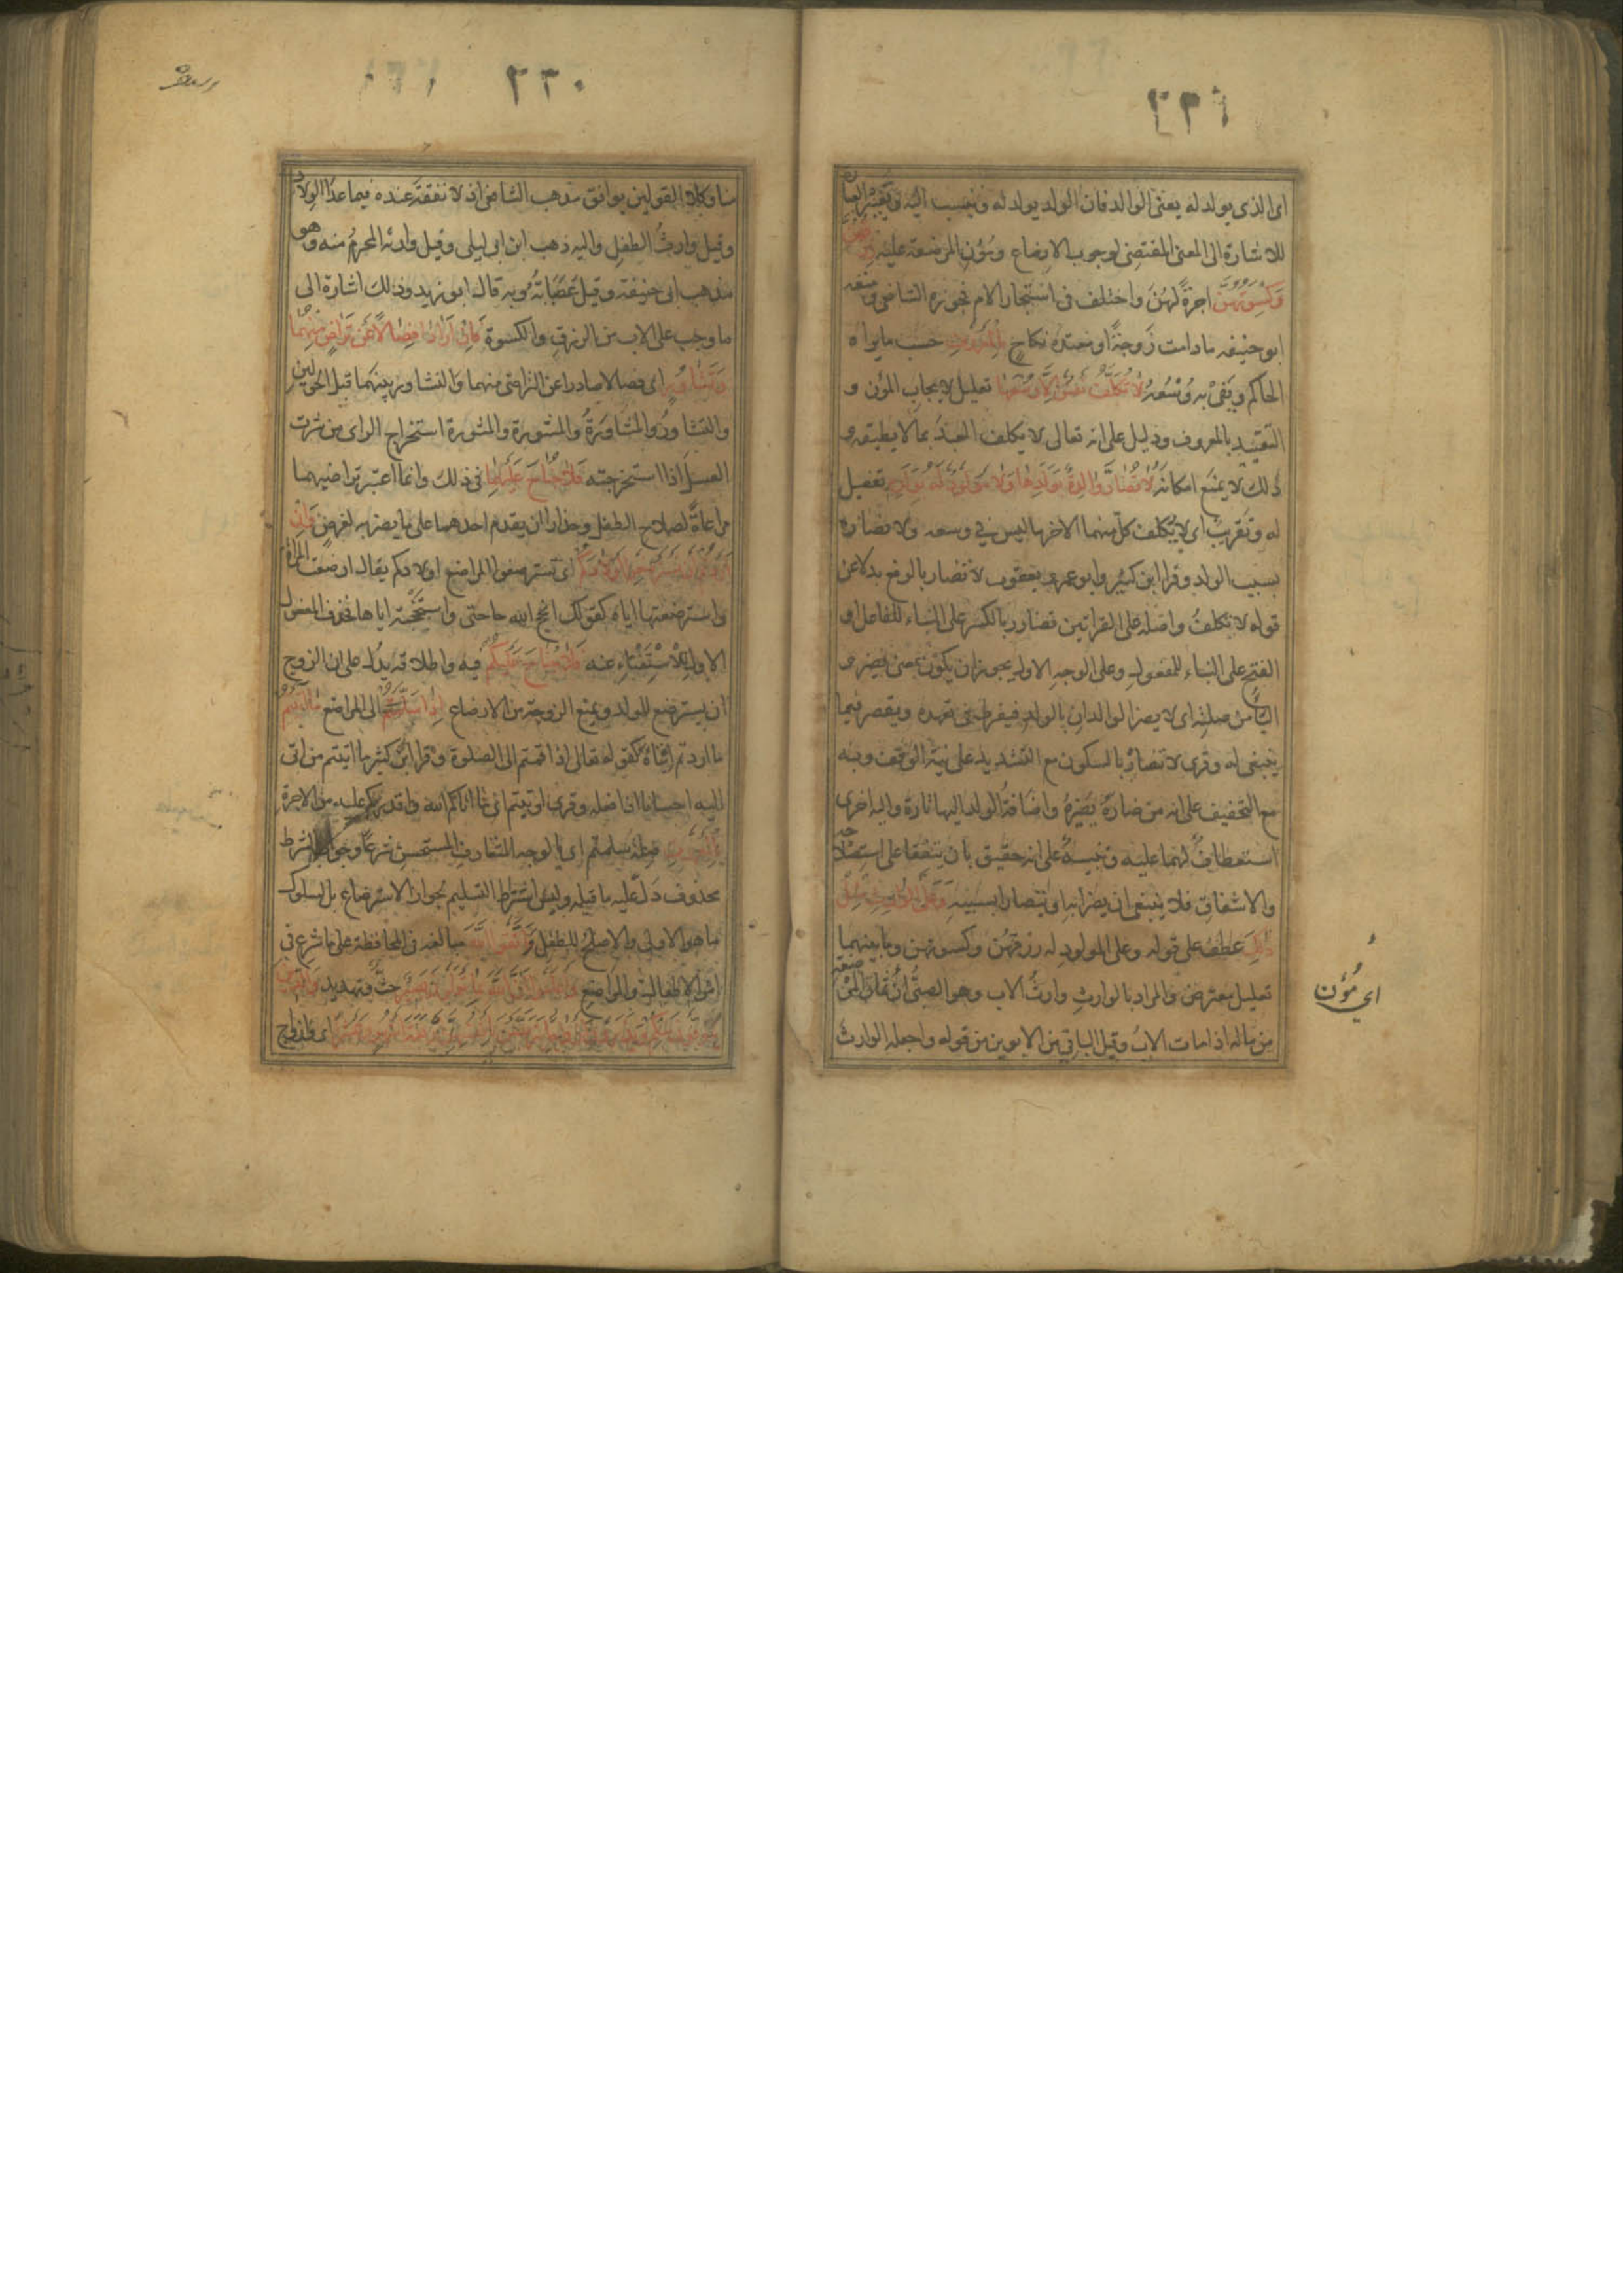 ٢٣١
اى الذى يولد له يعنى الوالد فان الولد يولد له وينسب اليه وتغيير العبارة
للاشارة الى المعنى المقتضى لوجوب الارضاع ومؤن المرضعة عليه رزقهن
وكسوتهن اجرة لهن واختلف فى استيجار الام فجوزه الشافعى ومنعه
ابو حنيفه ما دامت زوجة او معتدة نكاح بالمعروف حسب مايراه
الحاكم ويفى به وسعه لا تكلف نفس الا وسعها تعليل لايجاب المؤن و
التقييد بالمعروف ودليل على انه تعالى لا يكلف العبد بما لا يطيقه و
ذلك لا يمنع امكانه لا تضار والدة بولدها ولا مولود له بولده تفصيل
له وتقريب اى لا يكلف كل منهما الاخر ما ليس فى وسعه ولا تضاره
بسبب الولد وقرا ابن كثير وابو عمرو ويعقوب لا تضار بالرفع بدلا عن
قوله لا تكلف واصله على القراتين تضارر بالكسر على البناء للفاعل او
الفتح على البناء للمفعول وعلى الوجه الاول يجوز ان يكون بمعنى تضر و
الباء من صلته اى لا يضر الوالدان بالولد فيفرط فى تعهده ويقصر فيما
ينبغى له وقرى لا تضار بالسكون مع التشديد على نية الوقف وبه
مع التخفيف على انه من ضاره يضيره واضافة الولد اليها تارة واليه اخرى
استعطاف لهما عليه وتنبيه على انه حقيق بان يتفقا على استصلاحه
والاشفاق فلا ينبغى ان يضرا به او يتضارا بسببه وعلى الوارث مثل
ذلك عطف على قوله وعلى المولود له رزقهن وكسوتهن وما بينهما
تعليل معترض والمراد بالوارث وارث الاب وهو الصبى اى مؤن المرضعة
من ماله اذا مات الاب وقيل الباقى من الابوين من قوله واجعله الوارث
اى مؤن
٢٣٠
منا وكلا القولين يوافق مذهب الشافعى اذ لا نفقة عنده فيما عدا الولاد
وقيل وارث الطفل واليه ذهب ابن ابى ليلى وقيل وارثه المحرم منه وهو
مذهب ابى حنيفة وقيل عصباته وبه قال ابو زيد وذلك اشارة الى
ما وجب على الاب من الرزق والكسوة فان ارادا فصالا عن تراض منهما
وتشاور اى فصالا صادرا عن التراضى منهما والتشاور بينهما قبل الحولين
والتشاور والمشاورة والمشورة والمشورة استخراج الراى من شرت
العسل اذا استخرجته فلا جناح عليهما فى ذلك وانما اعتبر تراضيهما
مراعاة لصلاح الطفل وحذرا ان يقدم احدهما على ما يضر به لغرض وان
اردتم ان تسترضعوا اولادكم اى تسترضعوا المراضع اولادكم يقال ارضعت المراة
واسترضعتها اياه كقولك انجح الله حاجتى واستنجحته اياها فحذف المفعول
الاول للاستغناء عنه فلا جناح عليكم فيه واطلاقه يدل على ان الزوج
ان يسترضع للولد ويمنع الزوجة من الارضاع اذا سلمتم الى المراضع ما آتيتم
ما اردتم ايتاه كقوله تعالى اذا قمتم الى الصلوة وقرا ابن كثير ما اتيتم من اتى
اليه احسانا اذا فعله وقرى اوتيتم اى ما اتاكم الله واقدركم عليه من الاجرة
بالمعروف صلة سلمتم اى بالوجه المتعارف المستحسن شرعا وجواب الشرط
محذوف دل عليه ما قبله وليس اشتراط التسليم لجواز الاسترضاع بل لسلوك
ما هو الاولى والاصلح للطفل واتقوا الله مبالغه فى المحافظة على ما شرع فى
امر الاطفال والمراضع واعلموا ان الله بما تعملون بصير حث وتهديد والذين
يتوفون منكم ويذرون ازواجا يتربصن بانفسهن اربعة اشهر وعشرا اى وازواج